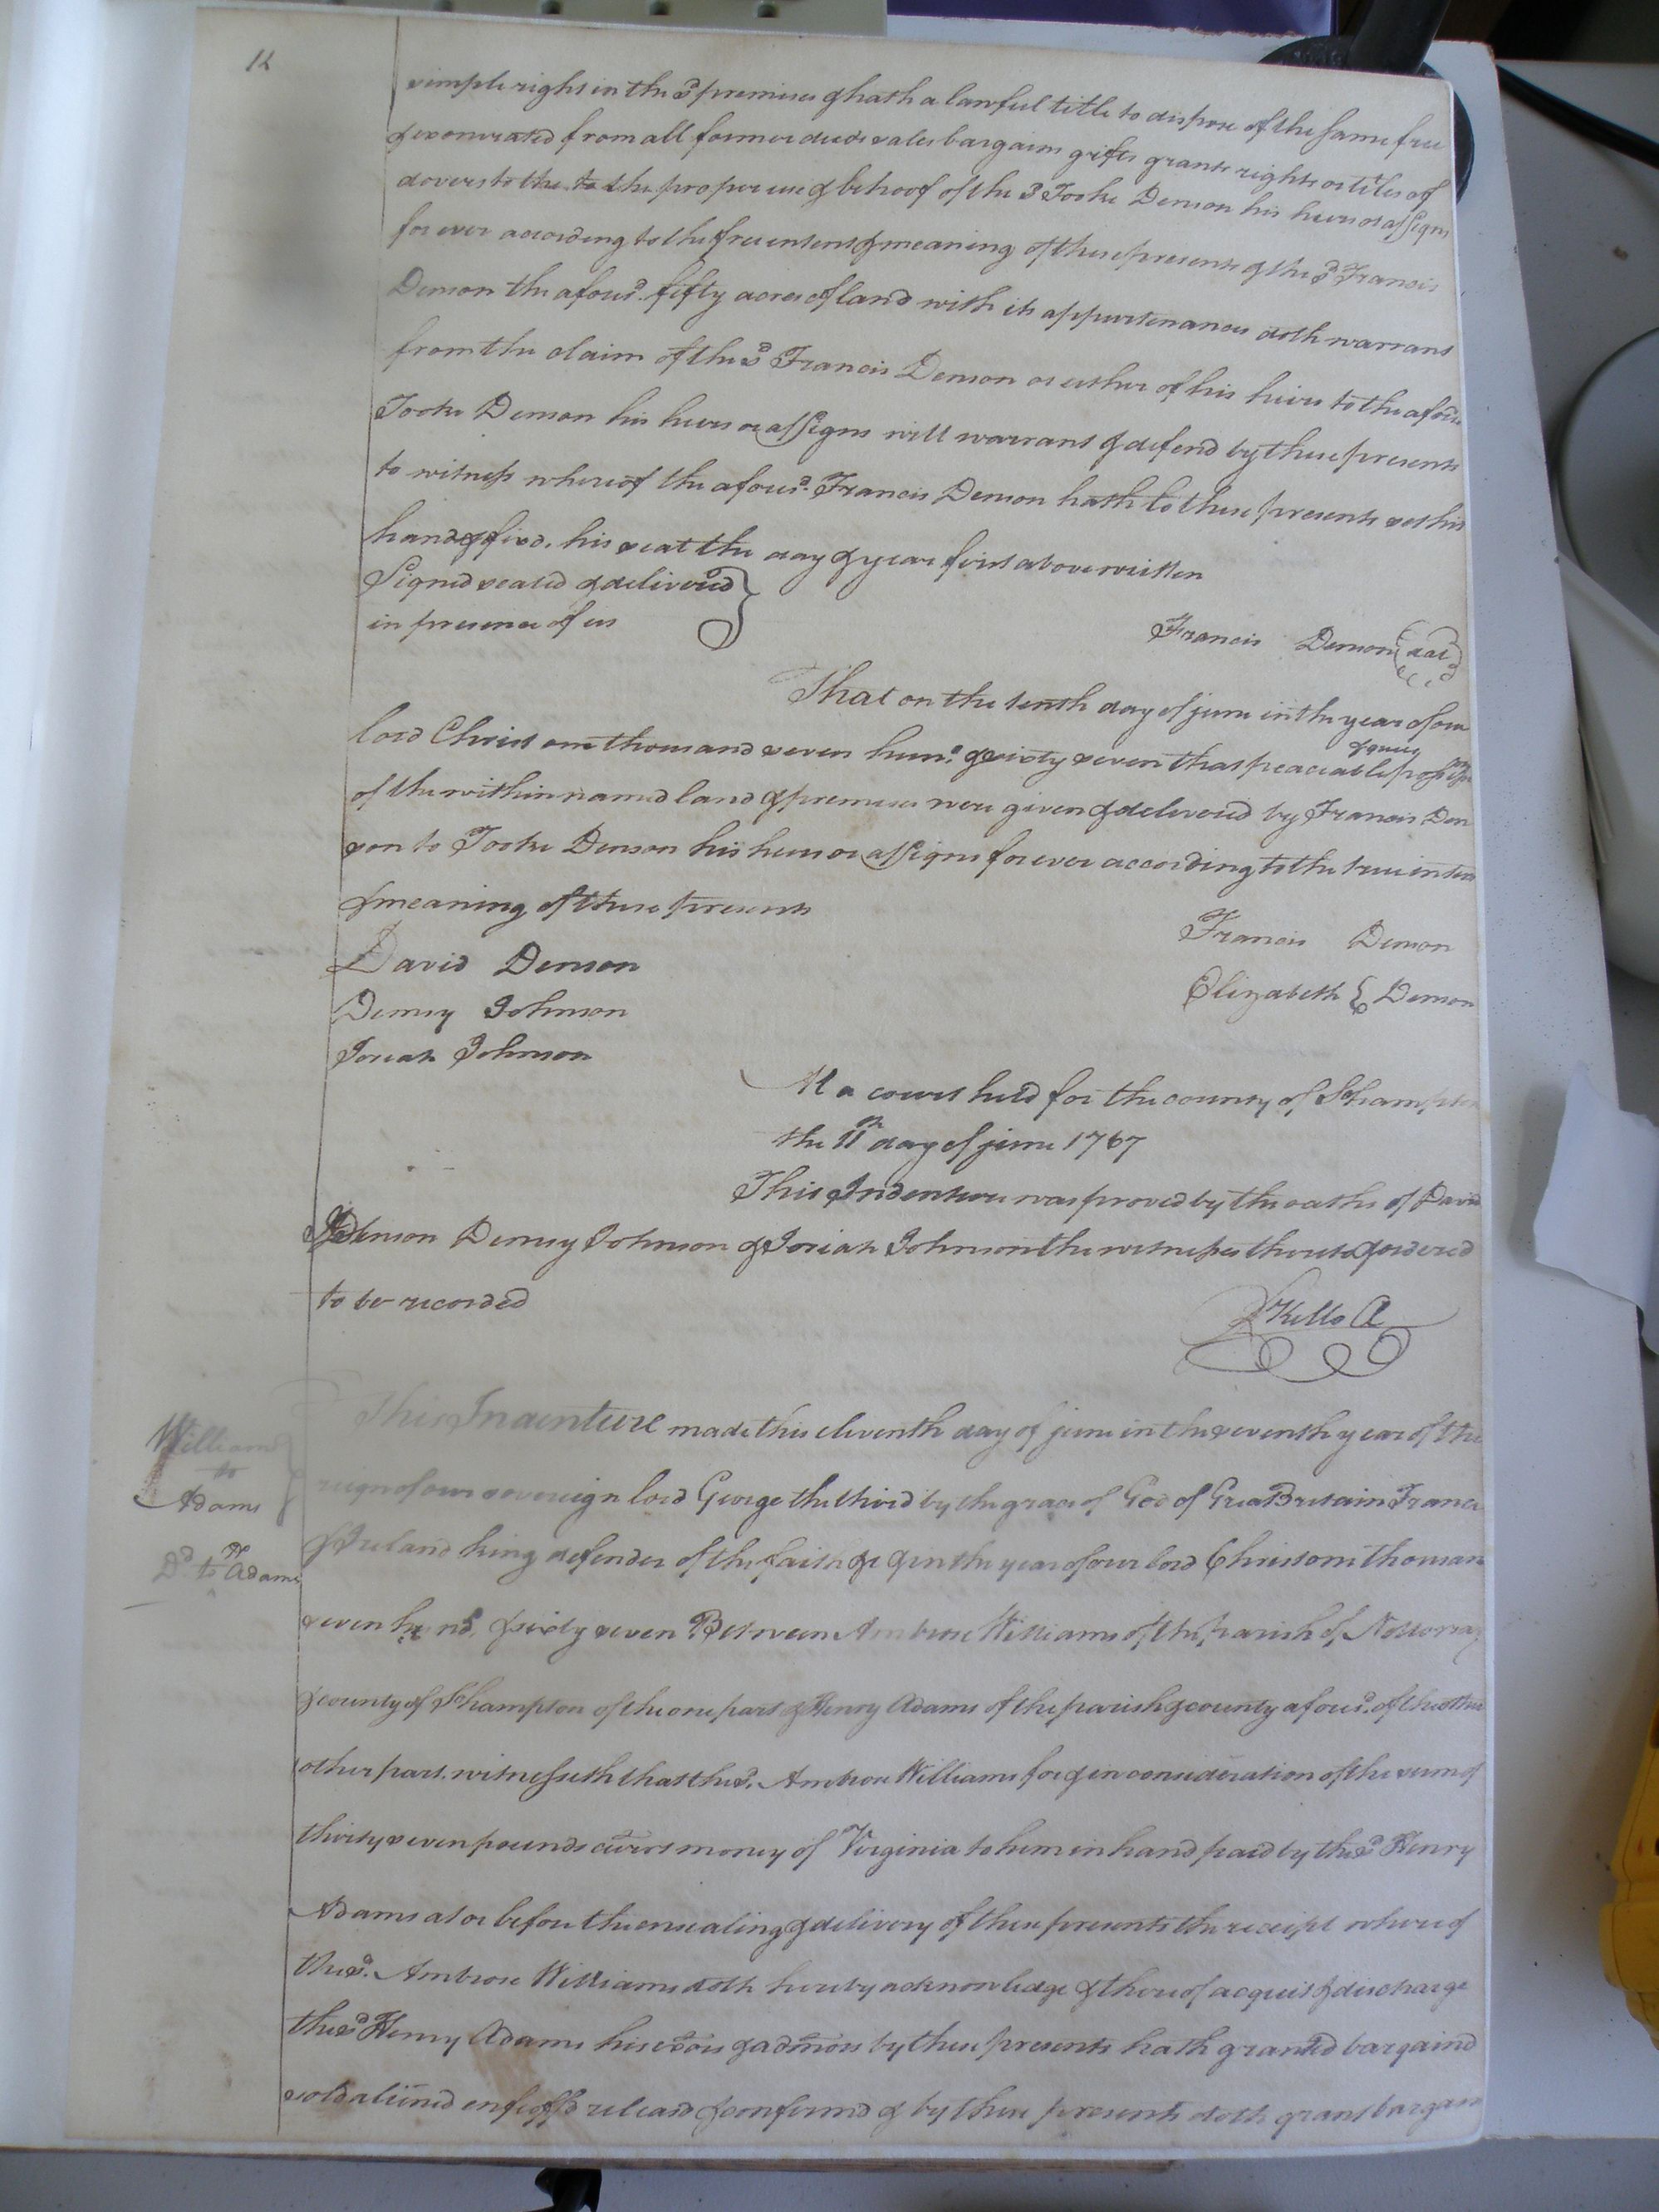 12
simple right in the sd. premises & hath a lawful title to dispose of the same free
& exonerated from all former deeds sales bargains gifts grants rights or titles of
dowers to the to the proper use & behoof of the sd Tooke Denson his heirs or assigns
for ever according to the free intent & meaning of these presents & the sd. Francis
Denson the afousd. fifty acres of land with its appurtenances doth warrant
from the claim of the sd Francis Denson or either of his heirs to the afousd
Tooke Denson his heirs or assigns will warrant & defend by these presents
to witness whereof the afousd. Francis Denson hath to these presents set his
hand & fixd. his seal the day & year first above written
Signed sealed & deliverd
in presence of us
Francis Denson seal
That on the tenth day of june in the year of our
lord Christ one thousand seven hund. & sixty seven that peaceable & quiet
of the within named land & premises were given & deliverd by Francis Den
son to Tooke Denson his heirs or assigns for ever according to the true intent
& meaning of these presents
Francis Denson
David Denson
Elizabeth Denson
Demsy Johnson
Josiah Johnson
At a court held for the county of Shampton
the 11th day of june 1767
This Indenture was proved by the oaths of David
Denson Demsy Johnson & Josiah Johnson the witnesses thereto & orderd
to be recorded
Kello
William
to
Adams
Dd to Adams
This Indenture made this eleventh day of june in the seventh year of the
reign of our sovereign lord George the third by the grace of God of Grea Britain France
& Ireland king defender of the faith &c & in the year of our lord Christ one thousan
seven hund. & sixty seven Between Ambrose Williams of the parish of Nottoway
& county of Shampton of the one part & Henry Adams of the parish & county afousd. of the other
other part. witnesseth that the sd. Ambrose Williams for & in consideration of the sum of
thirty seven pounds currt money of Virginia to him in hand paid by the sd Henry
Adams at or before the ensealing & delivery of these presents the receipt whereof
the sd. Ambrose Williams doth hereby acknowledge & thereof acquit & discharge
the sd Henry Adams his exors & admors by these presents hath granted bargaind
sold aliend enfeoffd releasd & confirmd & by these presents doth grant bargain